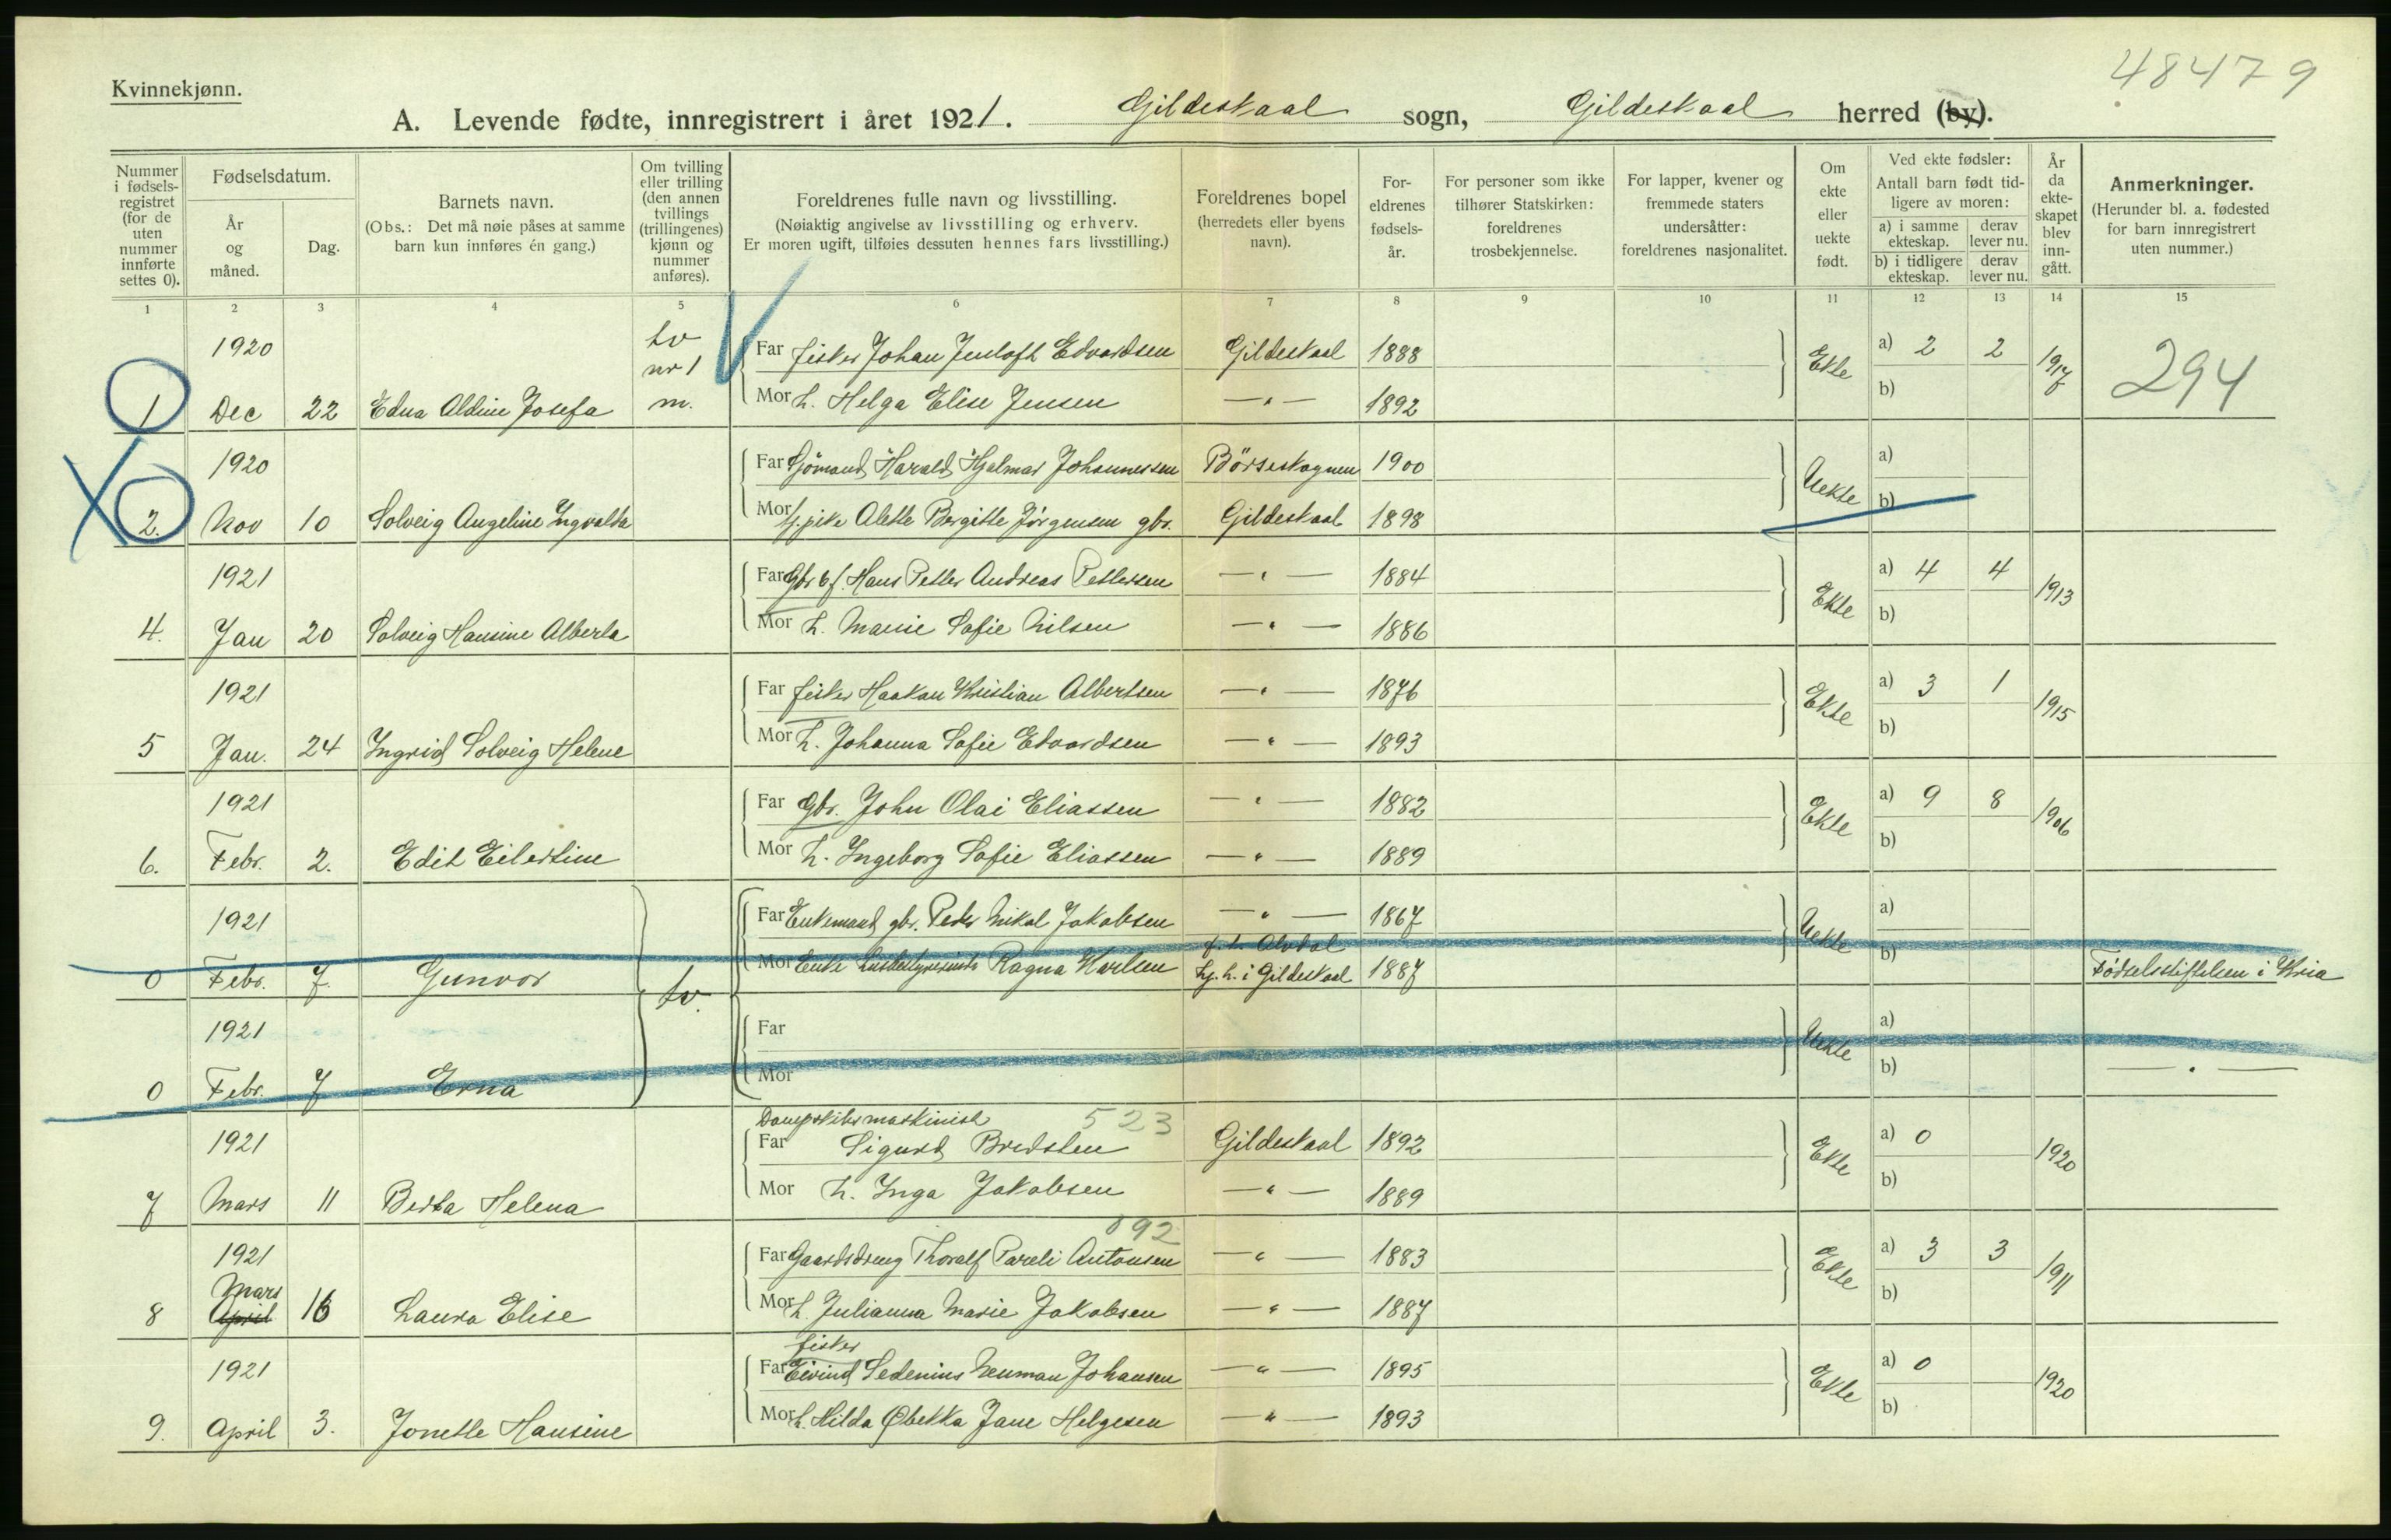 48479
Kvinnekjønn.
A. Levende fødte, innregistrert i året 1921. Gildeskaal sogn, Gildeskaal herred (by).
Nummer i fødsels-registret (for de uten nummer innførte settes 0).
Fødselsdatum.
År og måned.
Dag.
Barnets navn.
(Obs.: Det må nøie påses at samme barn kun innføres én gang.)
Om tvilling eller trilling (den annen tvillings (trillingenes) kjønn og nummer anføres).
Foreldrenes fulle navn og livsstilling.
(Nøiaktig angivelse av livsstilling og erhverv.
Er moren ugift, tilføies dessuten hennes fars livsstilling.)
Foreldrenes bopel (herredets eller byens navn).
For-eldrenes fødsels-år.
For personer som ikke tilhører Statskirken: foreldrenes trosbekjennelse.
For lapper, kvener og fremmede staters undersåtter: foreldrenes nasjonalitet.
Om ekte eller uekte født.
Ved ekte fødsler: Antall barn født tid-ligere av moren:
a) i samme ekteskap. derav lever nu.
b) i tidligere ekteskap. derav lever nu.
År da ekte-skapet blev inn-gått.
Anmerkninger.
(Herunder bl. a. fødested for barn innregistrert uten nummer.)
1 2 3 4 5 6 7 8 9 10 11 12 13 14 15
1920 tv nr 1 Far fisker Johan Edvardsen Gildeskaal 1888 Ekte a) 2 2 1917 294
1 Dec 22 Edna Aldine Josefa m. Mor h. Helga Elise Jensen — " — 1892 b)
1920 Far Sjömand Harald Hjalmar Johannessen Börseskognen 1900 Uekte a)
2. Nov 10 Solveig Angeline Ingvalda Mor pike Alette Bergitte Jörgensen gbr. Gildeskaal 1898 b)
1921 Far Gbr. Hans Petter Andreas Pettersen — " — 1884 Ekte a) 4 4 1913
4. Jan 20 Solveig Hansine Alberta Mor h. Marie Sofie Nilsen — " — 1886 b)
1921 Far fisker Haakan Kristian Albertsen — " — 1876 Ekte a) 3 1 1915
5 Jan. 24 Ingrid Solveig Helene Mor h. Johanna Sofie Edvardsen — " — 1893 b)
1921 Far Gbr. John Olai Eliassen — " — 1882 Ekte a) 9 8 1906
6. Febr. 2. Edit Eilertine Mor h. Ingeborg Sofie Eliassen — " — 1889 b)
1921 Far Enkemand gbr. Peder Mikal Jakobsen — " — 1867 Uekte a)
0 Febr. 7. Gunvor tv. Mor Enke Ragna Karlsen f. h. Alvdal hj. h. i Gildeskaal 1887 b) Födselsstiftelsen i Kria
1921 Far Uekte a)
0 Febr. 7 Erna Mor b) — " —
Dampskibsmaskinist 523
1921 Far Sigurd Bredsten Gildeskaal 1892 Ekte a) 0 1920
7 Mars 11 Berta Helena Mor h. Inga Jakobsen — " — 1889 b)
892
1921 Far Gaardsdreng Thoralf Pareli Antonsen — " — 1883 Ekte a) 3 3 1911
Mars
8 April 16 Laura Elise Mor h. Julianna Marie Jakobsen — " — 1887 b)
fisker
1921 Far Eivind Sedenius Neuman Johansen — " — 1895 Ekte a) 0 1920
9. April 3. Jonette Hansine Mor h. Hilda Rebekka Jane Helgesen — " — 1893 b)